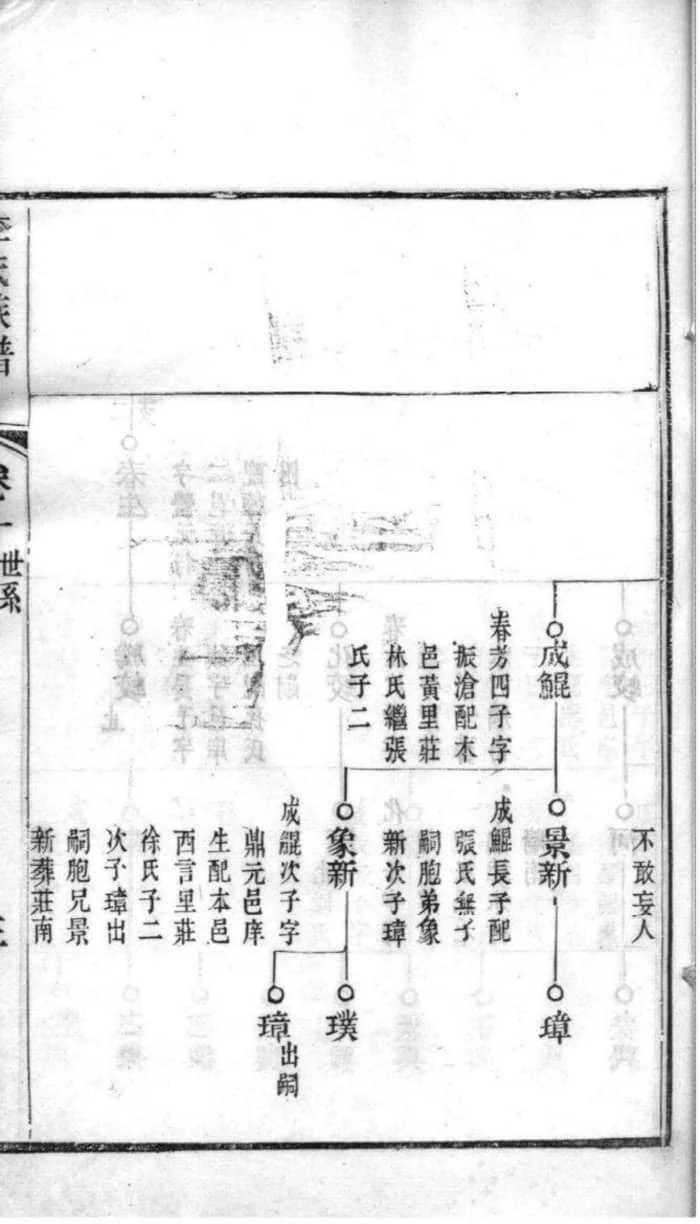 不敢妄人
成鯤
春芳四子字
振滄配木
邑黃里莊
林氏繼張
氏子二
景新
成鯤長子配
張氏無子
嗣胞弟象
新次子璋
象新
成鯤次子字
鼎元邑庠
生配本邑
西言里莊
徐氏子二
次子璋出
嗣胞兄景
新葬莊南
璋
璞
璋
出嗣
氏族譜
世系